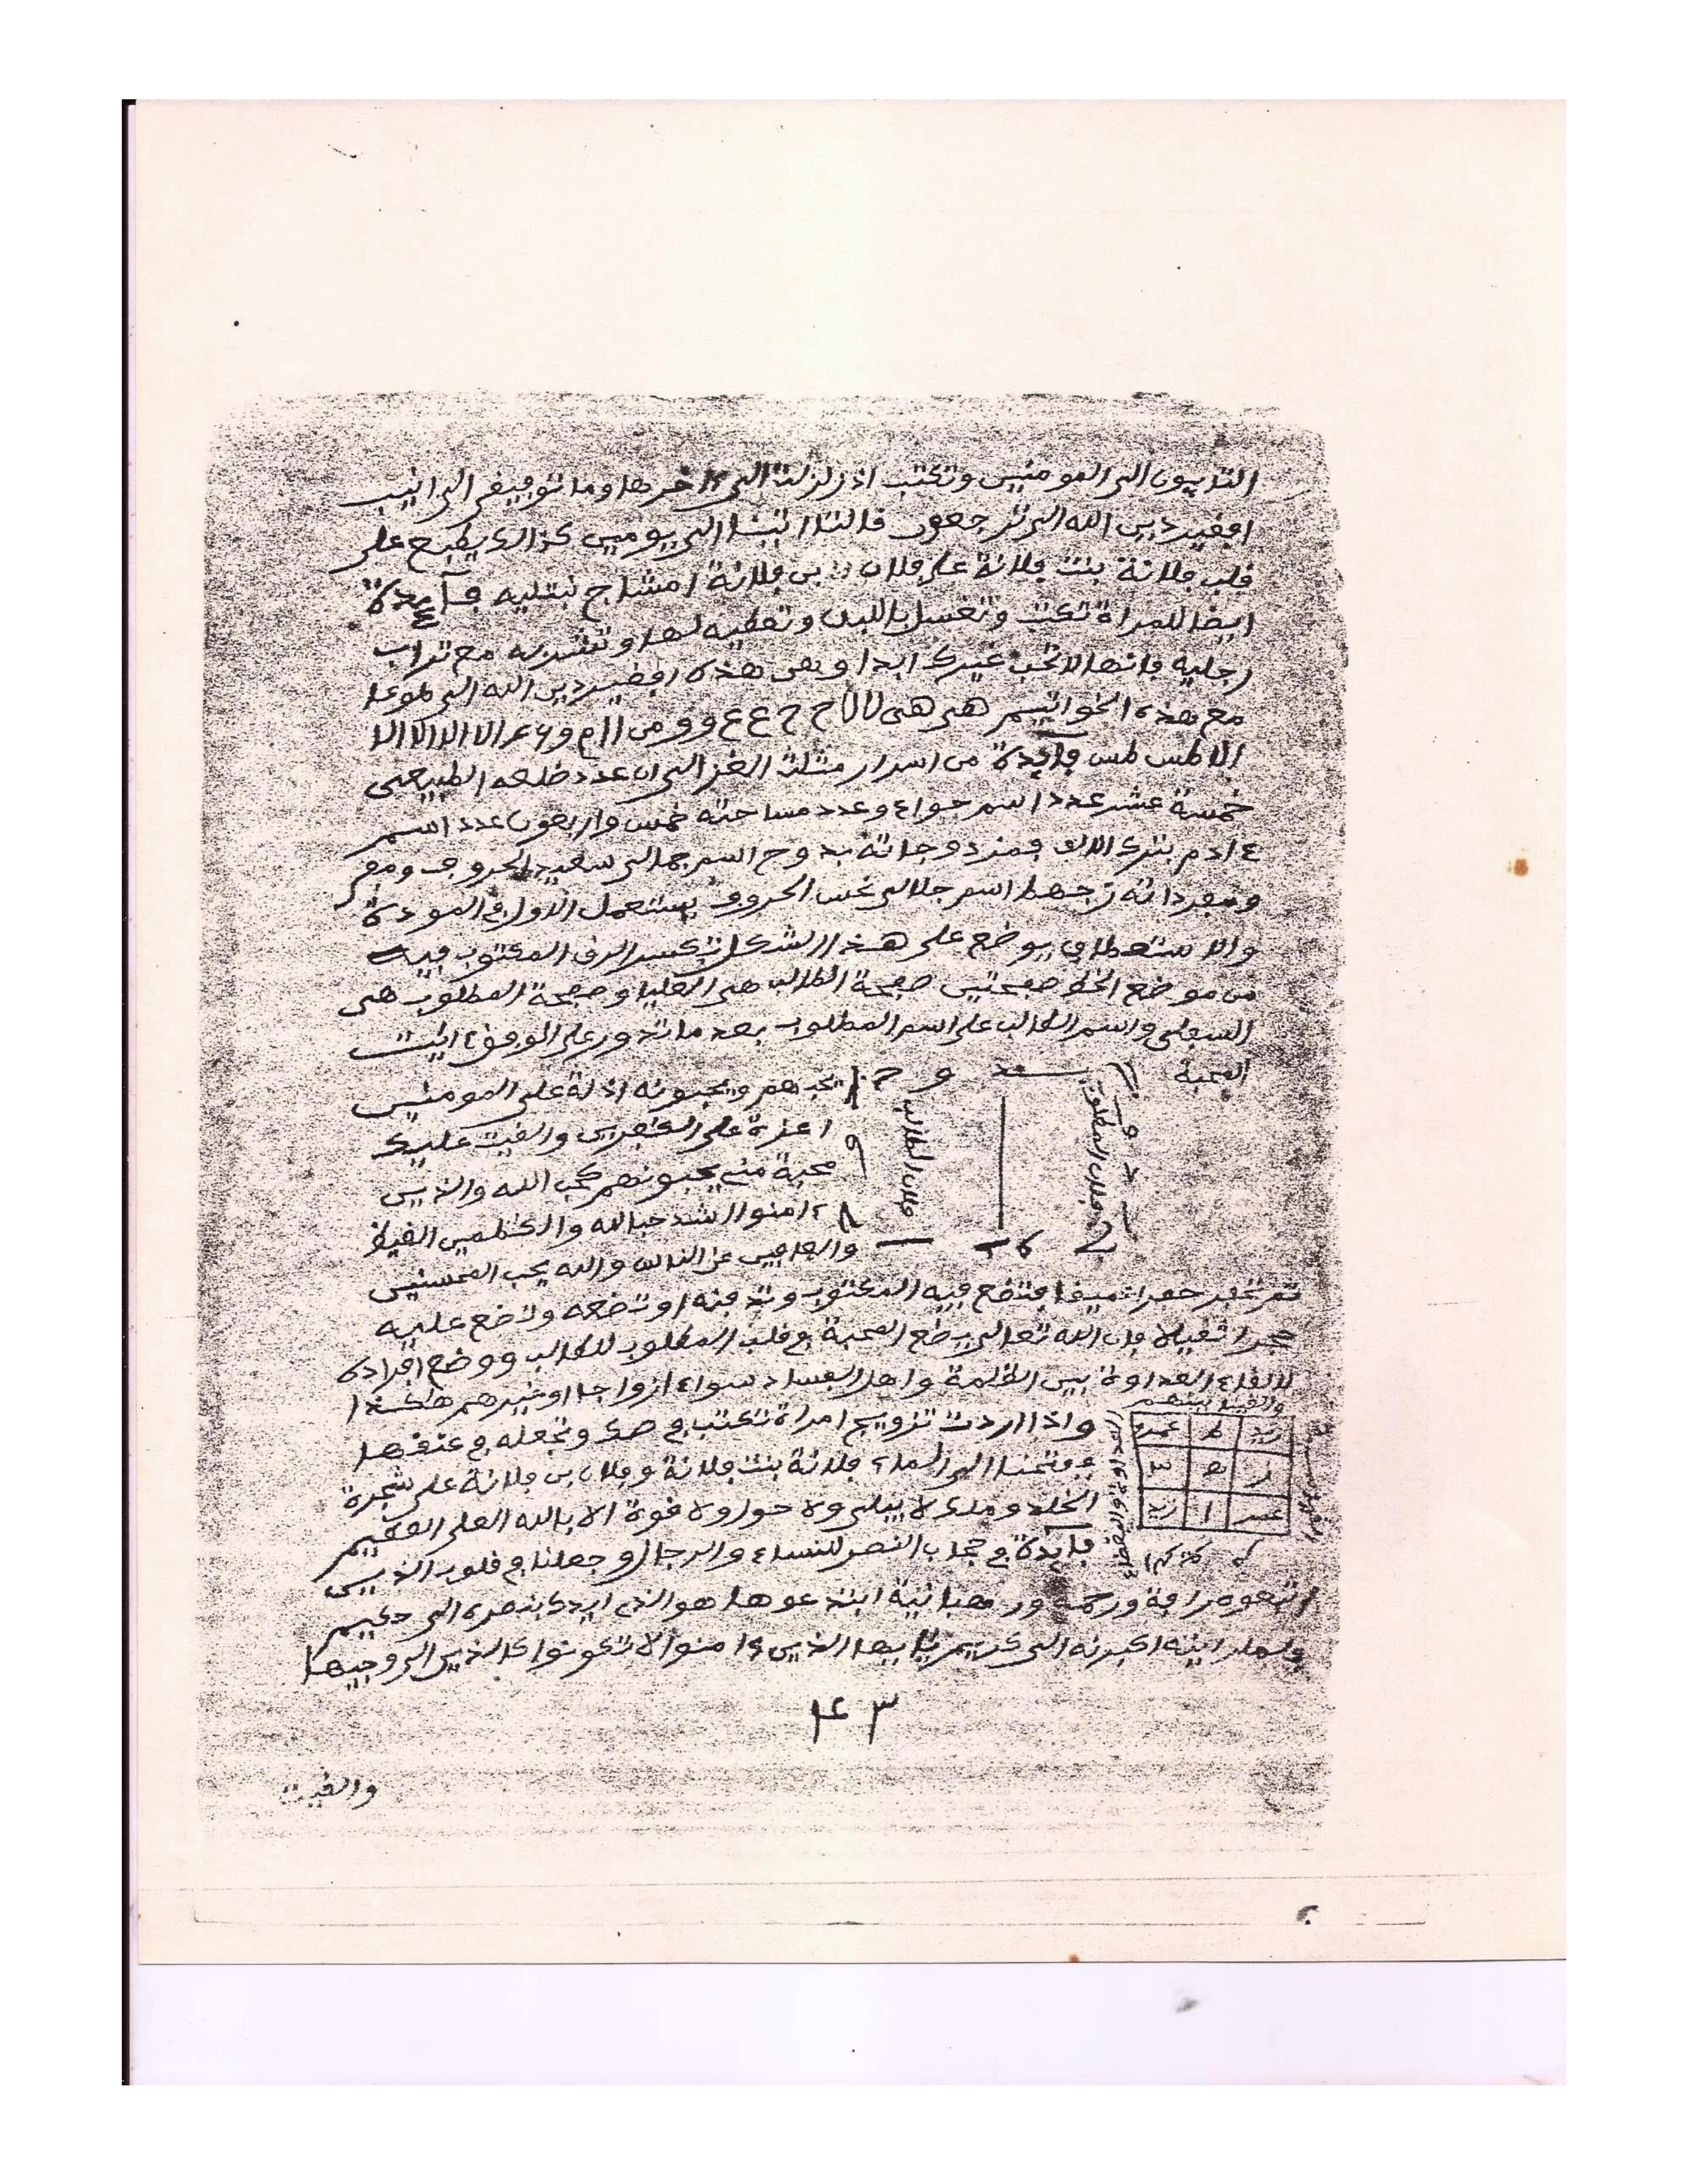 التايبون الى المومنين وتكتب اذا زلزلت الى اخرها وما توفيفي الى انيب
افغير دين الله الى ترجعون فالتا اتينا الى يومين كذالك يطبع على
فلب فلانة بنت فلانة على فلان بن فلانة امشاج نبتليه فايدة
ايضا للمراة تكتب وتغسل باللبن وتعطيه لها وتشربه مع تراب
رجليه فانها لا تحب غيرك ابدا وهى هذه افغير دين الله الى طوعا
مع هذه الخواتيم
طس طس فايدة من اسرار مثلث الغزالى ان عدد ضلعه الطبيعى
خمسة عشر عدد اسم حواء وعدد مساحته خمس واربعون عدد اسم
ءادم بترك الالف فمزدوجاته بدوح اسم جمالى سعيد الحروف
ومفرداته زجهط اسم جلالى نحس الحروف يستعمل الاول في المودة
والاستعطاف يوضع على هذا الشكل تكسر الرق المكتوب فيه
من موضع الخط صفحتين صفحة الطالب هى العليا وصفحة المطلوب هى
السفلى واسم الطالب على اسم المطلوب بعد ما تدور على الوفق ءايت
المحبة
يحبهم ويحبونه اذلة على المومنين
اعزة على الكفرين والفيت عليك
محبة مني يحبونهم كحب الله والذين
ءامنوا اشد حبا لله والكظمين الغيظ
والعافين عن الناس والله يحب المحسنين
فلان الطالب
فلان المطلوب
ثم تحفر حفرا عميفا فتضع فيه المكتوب وتدفنه او تضعه وتضع عليه
حجرا ثفيلا فان الله تعالى يضع المحبة في فلب المطلوب للطالب ووضع افراده
لالفاء العداوة بين الظلمة واهل الفساد سواء ازواجا او غيرهم هكذا
والفينا بينهم
العداوة والبغضاء
زيد ط عمر
ز ه ج
عمر ا زيد
واذا اردت تزويج امراة تكتب في وتجعله في عنفها
ففتحنا الى الماء فلانة بنت فلانة وفلان بن فلانة على شجرة
الخلد وملك لا يبلى ولا حول ولا فوة الا بالله العلى العظيم
فايدة في حجاب النصر للنساء والرجال وجعلنا في فلوب الذين
اتبعوه رافة ورحمة ورهبانية ابتدعوها هو الذي ايدك بنصره الى حكيم
فلما راينه اكبرنه الى كريم يايها الذين ءامنوا لا تكونوا كالذين الى وجيها
٤٣
والفيت